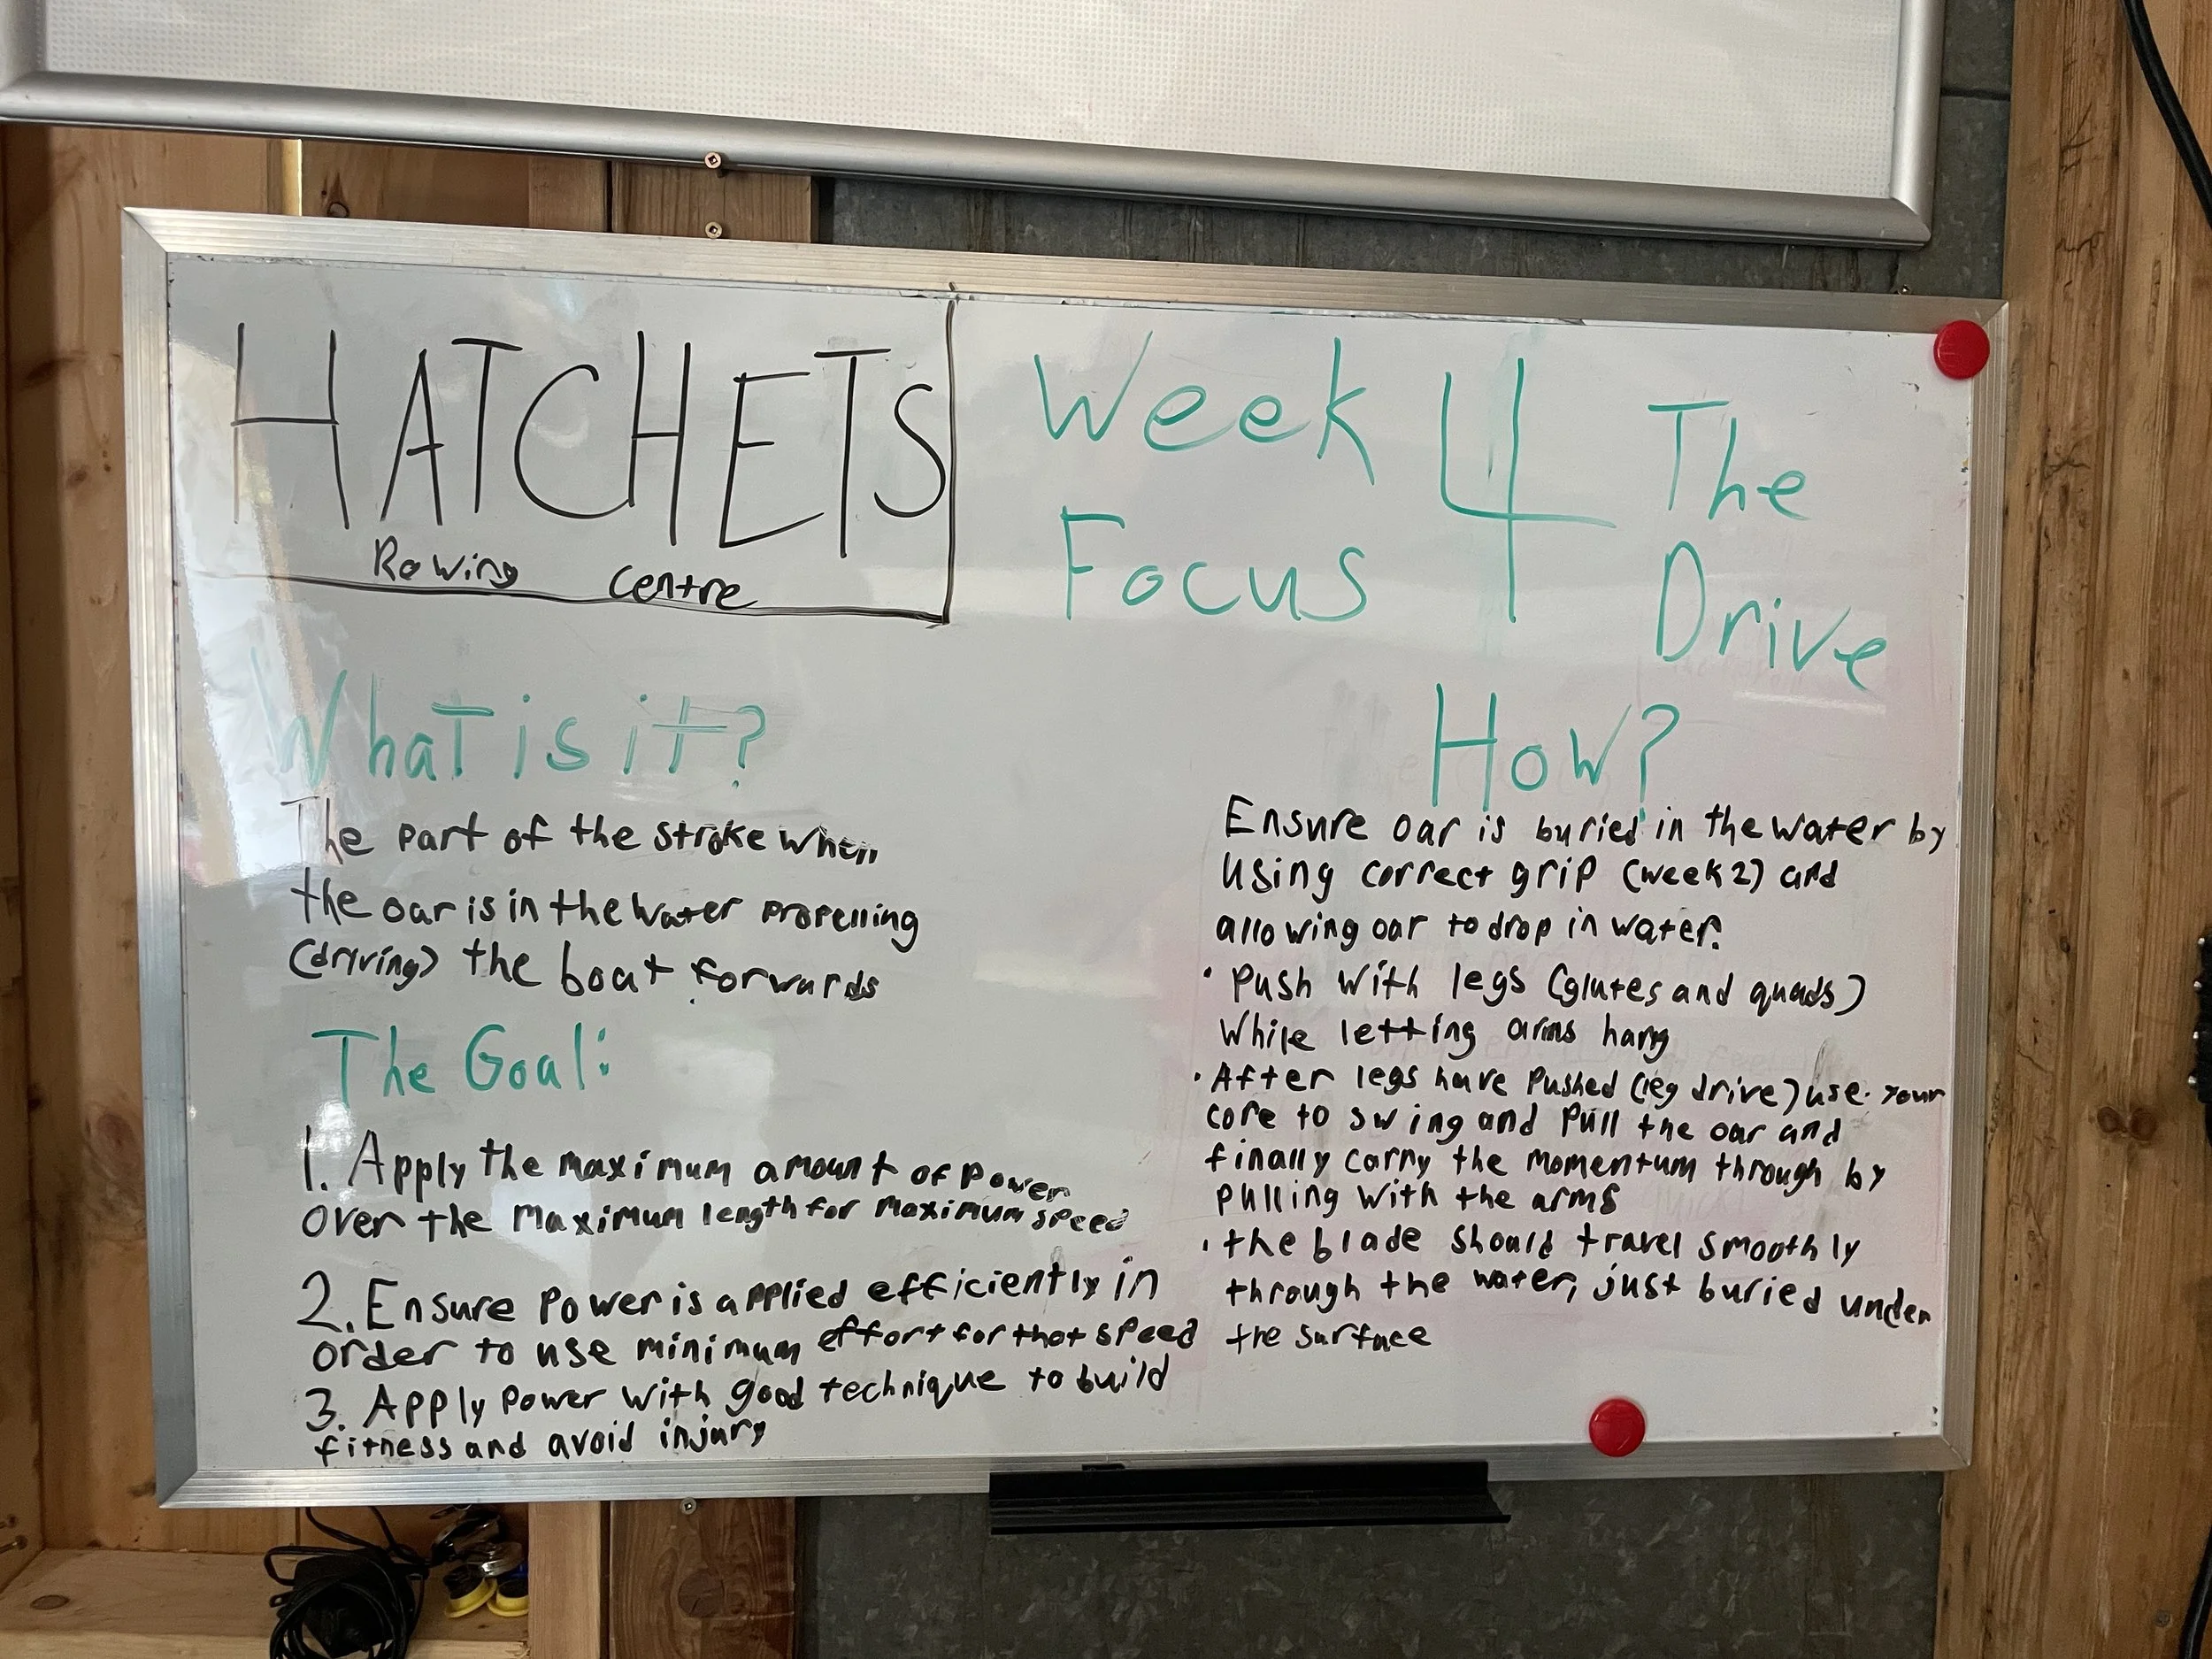 HATCHETS
Rowing centre
Week 4 The
Focus Drive
What is it?
The part of the stroke when
the oar is in the water propelling
(driving) the boat forwards
The Goal:
1. Apply the maximum amount of power
over the maximum length for maximum speed
2. Ensure power is applied efficiently in
order to use minimum effort for that speed
3. Apply power with good technique to build
fitness and avoid injury
How?
Ensure oar is buried in the water by
using correct grip (week 2) and
allowing oar to drop in water.
· Push with legs (glutes and quads)
While letting arms hang
· After legs have pushed (leg drive) use your
core to swing and pull the oar and
finally carry the momentum through by
pulling with the arms
· the blade should travel smoothly
through the water, just buried under
the surface